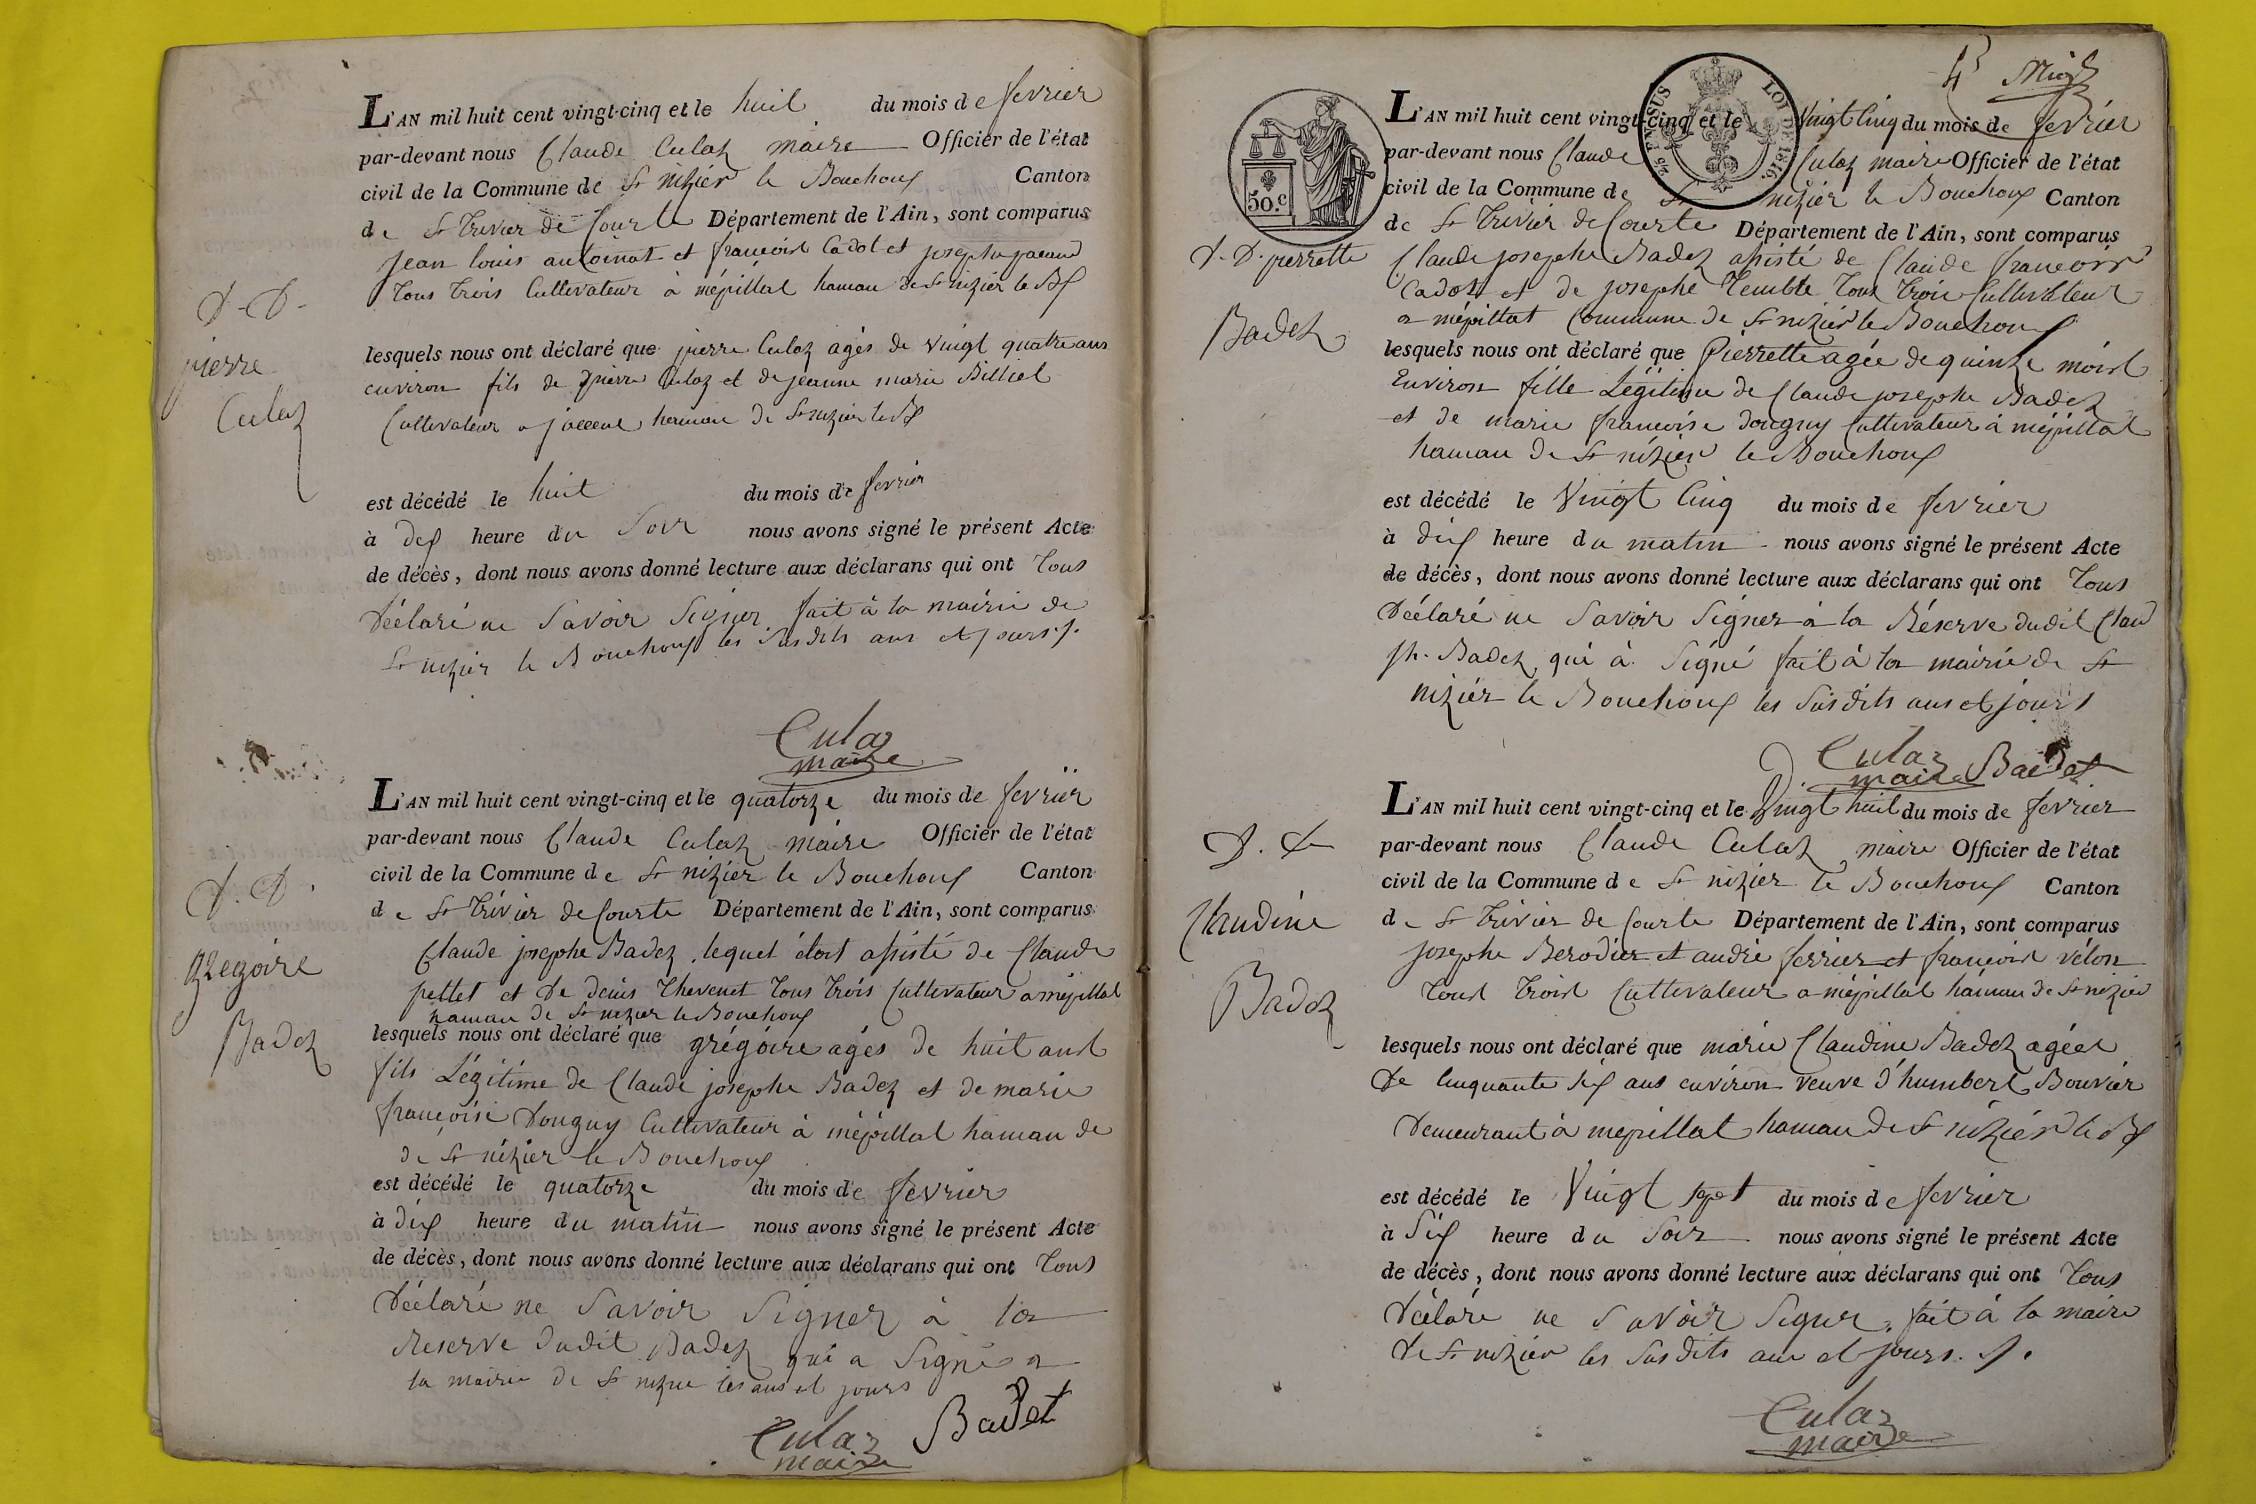 L'AN mil huit cent vingt-cinq et le huit du mois de fevrier
par-devant nous Claude Culaz maire Officier de l'état
civil de la Commune de St nizier le Bouchoux Canton
de St trivier de Courte Département de l'Ain, sont comparus
jean louis antoinat et francois Cadot et josephe
tous trois Cultivateur à mépillat hamau de St nizier le Bx
D. D.
pierre
Culaz
lesquels nous ont déclaré que pierre Culaz agés de vingt quatre ans
environ fils de pierre Culaz et de jeanne marie Billiet
Cultivateur a hamau de St nizier le Bx
est décédé le huit du mois de fevrier
à dix heure du Soir nous avons signé le présent Acte
de décès, dont nous avons donné lecture aux déclarans qui ont tous
Déclaré ne Savoir Signer fait à la mairie de
St nizier le Bouchoux les Susdits ans et jours
Culaz
maire
L'AN mil huit cent vingt-cinq et le quatorze du mois de fevrier
par-devant nous Claude Culaz maire Officier de l'état
civil de la Commune de St nizier le Bouchoux Canton
de St trivier de Courte Département de l'Ain, sont comparus
D. D.
gregoire
Badez
Claude josephe Badez lequel étoit assisté de Claude
pettet et de denis thevenet tous trois Cultivateur a mépillat
hamau de St nizier le Bouchoux
lesquels nous ont déclaré que grégoire agés de huit ans
fils Légitime de Claude josephe Badez et de marie
francoise Donguy Cultivateur à mépillat hamau de
de St nizier le Bouchoux
est décédé le quatorze du mois de fevrier
à dix heure du matin nous avons signé le présent Acte
de décès, dont nous avons donné lecture aux déclarans qui ont tous
Déclaré ne Savoir Signer à la
Reserve dudit Badez qui a Signé a
la mairie de St nizier les ans et jours
Culaz Badet
maire
50.c
LOI DE 1816.
L'AN mil huit cent vingt-cinq et le Vingt Cinq du mois de fevrier
par-devant nous Claude Culaz maire Officier de l'état
civil de la Commune de St nizier le Bouchoux Canton
de St trivier de Courte Département de l'Ain, sont comparus
D. D. pierrette
Badez
Claude josephe Badez assisté de Claude francois
Cadot et de josephe temble tous trois Cultivateur
a mépillat Commune de St nizier le Bouchoux
lesquels nous ont déclaré que Pierrette agée de quinze mois
Environ fille Légitime de Claude josephe Badez
et de marie francoise donguy Cultivateur à mépillat
hamau de St nizier le Bouchoux
est décédé le Vingt Cinq du mois de fevrier
à dix heure du matin nous avons signé le présent Acte
de décès, dont nous avons donné lecture aux déclarans qui ont tous
Déclaré ne Savoir Signer à la Réserve dudit Claud
jh. Badez qui à Signé fait à la mairie de St
nizier le Bouchoux les Susdits ans et jours
Culaz Badet
maire
L'AN mil huit cent vingt-cinq et le Vingt huit du mois de fevrier
par-devant nous Claude Culaz maire Officier de l'état
civil de la Commune de St nizier le Bouchoux Canton
de St trivier de Courte Département de l'Ain, sont comparus
D. D.
Claudine
Badez
josephe Berodier et andré ferrier et francois vélon
tous trois Cultivateur a mépillat hamau de St nizier
lesquels nous ont déclaré que marie Claudine Badez agées
De Cinquante six ans environ veuve d'humbert Bouvier
Demeurant à mepillat hamau de St nizier le Bx
est décédé le Vingt sept du mois de fevrier
à Six heure du Soir nous avons signé le présent Acte
de décès, dont nous avons donné lecture aux déclarans qui ont tous
Déclaré ne Savoir Signer, fait à la maire
De St nizier les Susdits ans et jours.
Culaz
maire